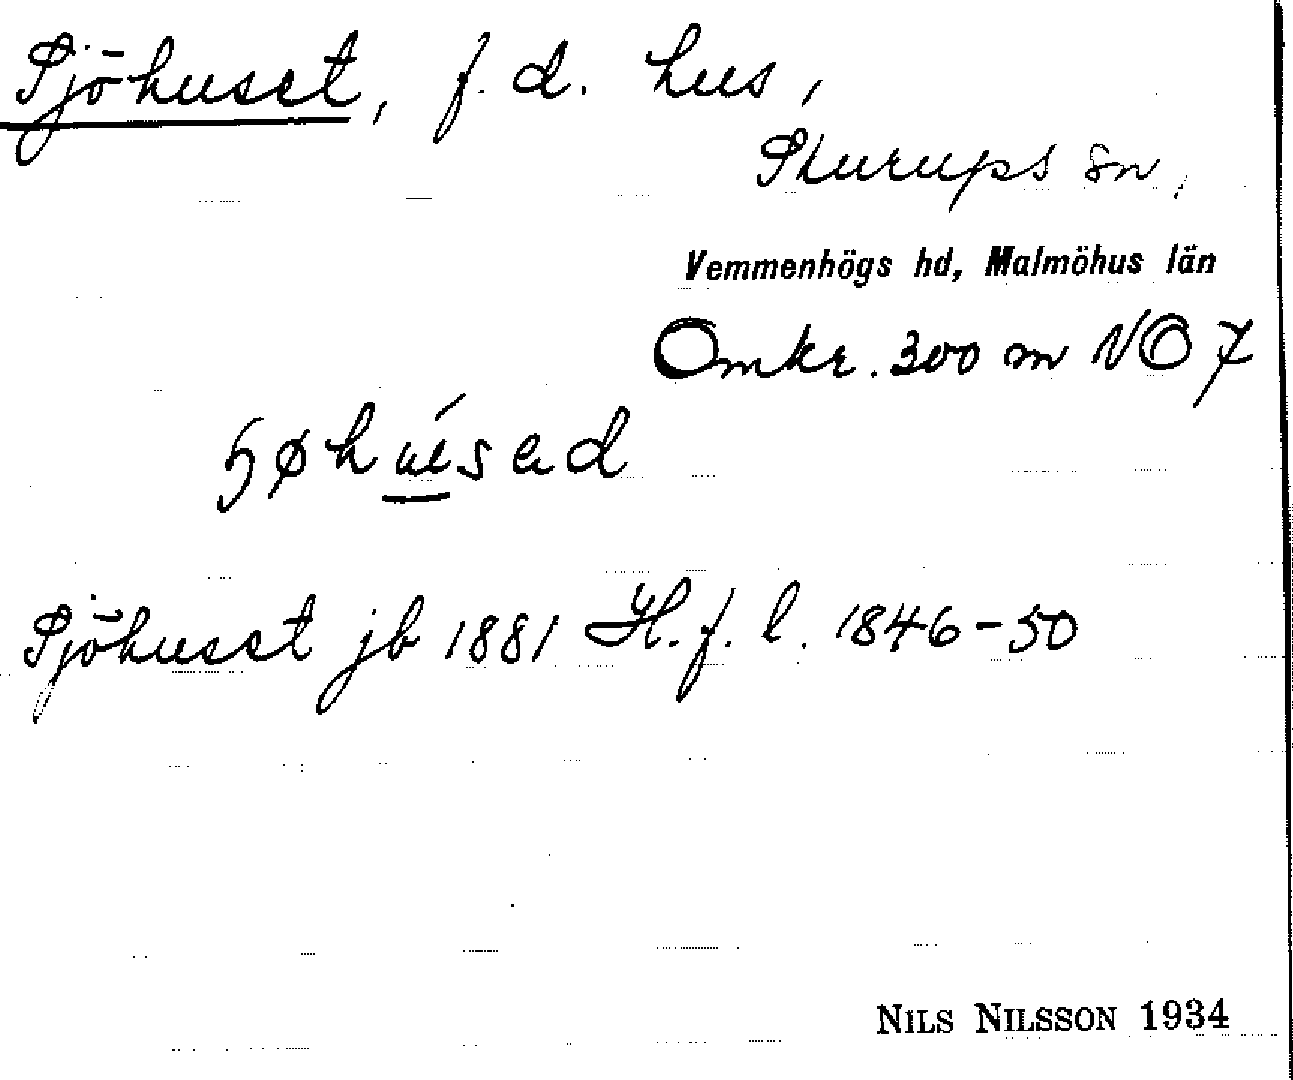 Sjöhuset, f. d. hus,
Skurups sn,
Vemmenhögs hd, Malmöhus län
Omkr. 300 m NO 7
Sjöhuset jb 1881 H. f. l. 1846-50
NILS NILSSON 1934